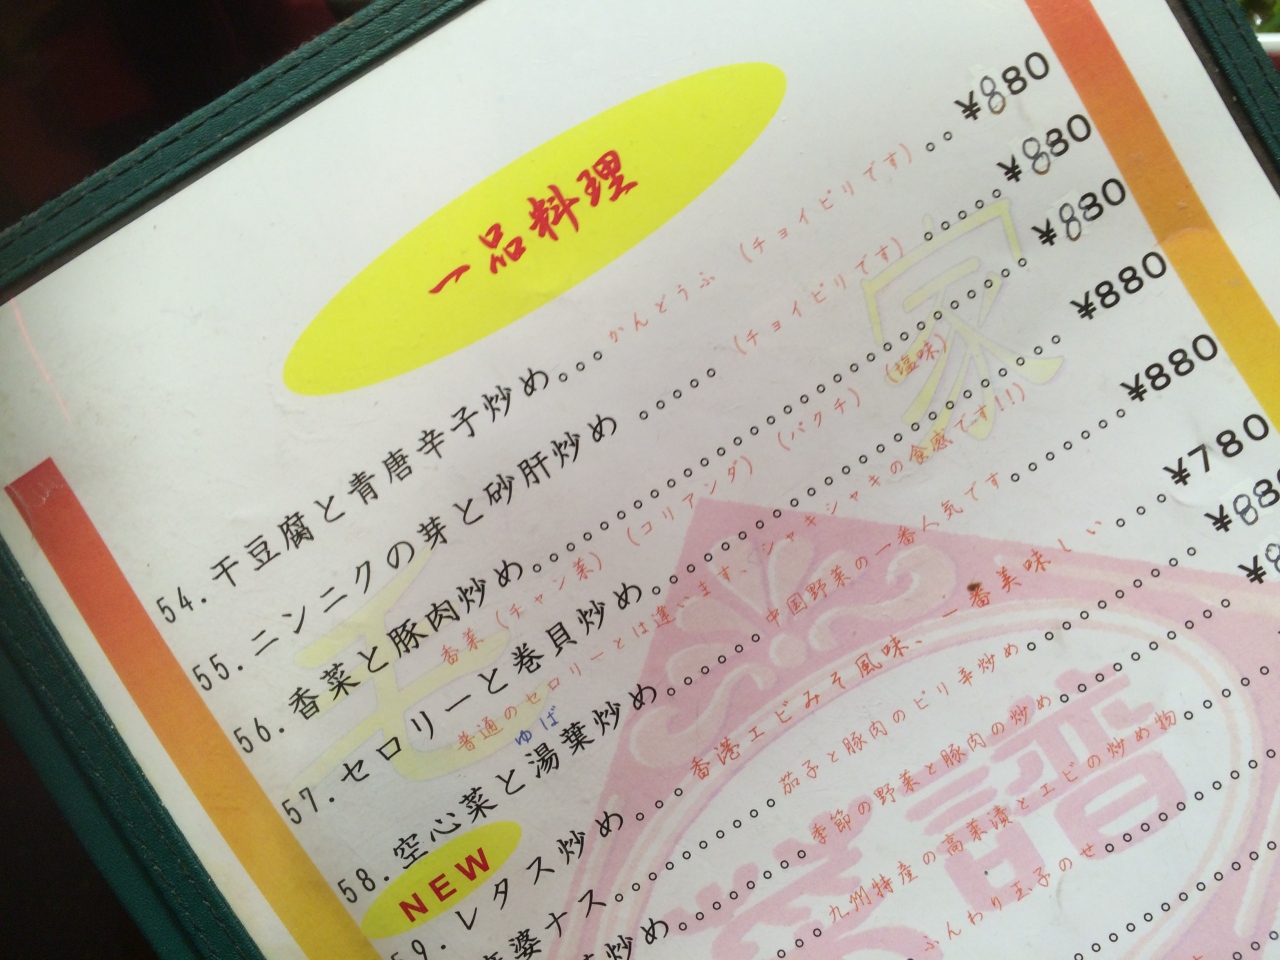 一品料理
54. 干豆腐と青唐辛子炒め。。。かんどうふ (チョイピリです)。。¥880
55. ニンニクの芽と砂肝炒め 。。。。。 (チョイピリです) 。。。。。¥880
56. 香菜と豚肉炒め。。。。。。。。。。。。。。。。。。。。。。。。。。¥880
香菜 (チャン菜) (コリアンダ) (パクチ) (塩味)
57. セロリーと巻貝炒め。。。。。。。。。。。。。。。。。。。。。。¥880
普通のセロリーとは違います、シャキシャキの食感です!!)
ゆば
58. 空心菜と湯葉炒め。。。。。。中国野菜の一番人気です。。。。。。。¥880
NEW
59. レタス炒め。。。香港エビみそ風味、一番美味しい。。。¥780
婆ナス。。。。。。。。。。茄子と豚肉のピリ辛炒め。。。。。。。。。¥880
炒め。。。。。。。。季節の野菜と豚肉の炒め。。。。。。。。。¥8
九州特産の高菜漬とエビの炒め物。。。。
ふんわり玉子のせ。。。。。。